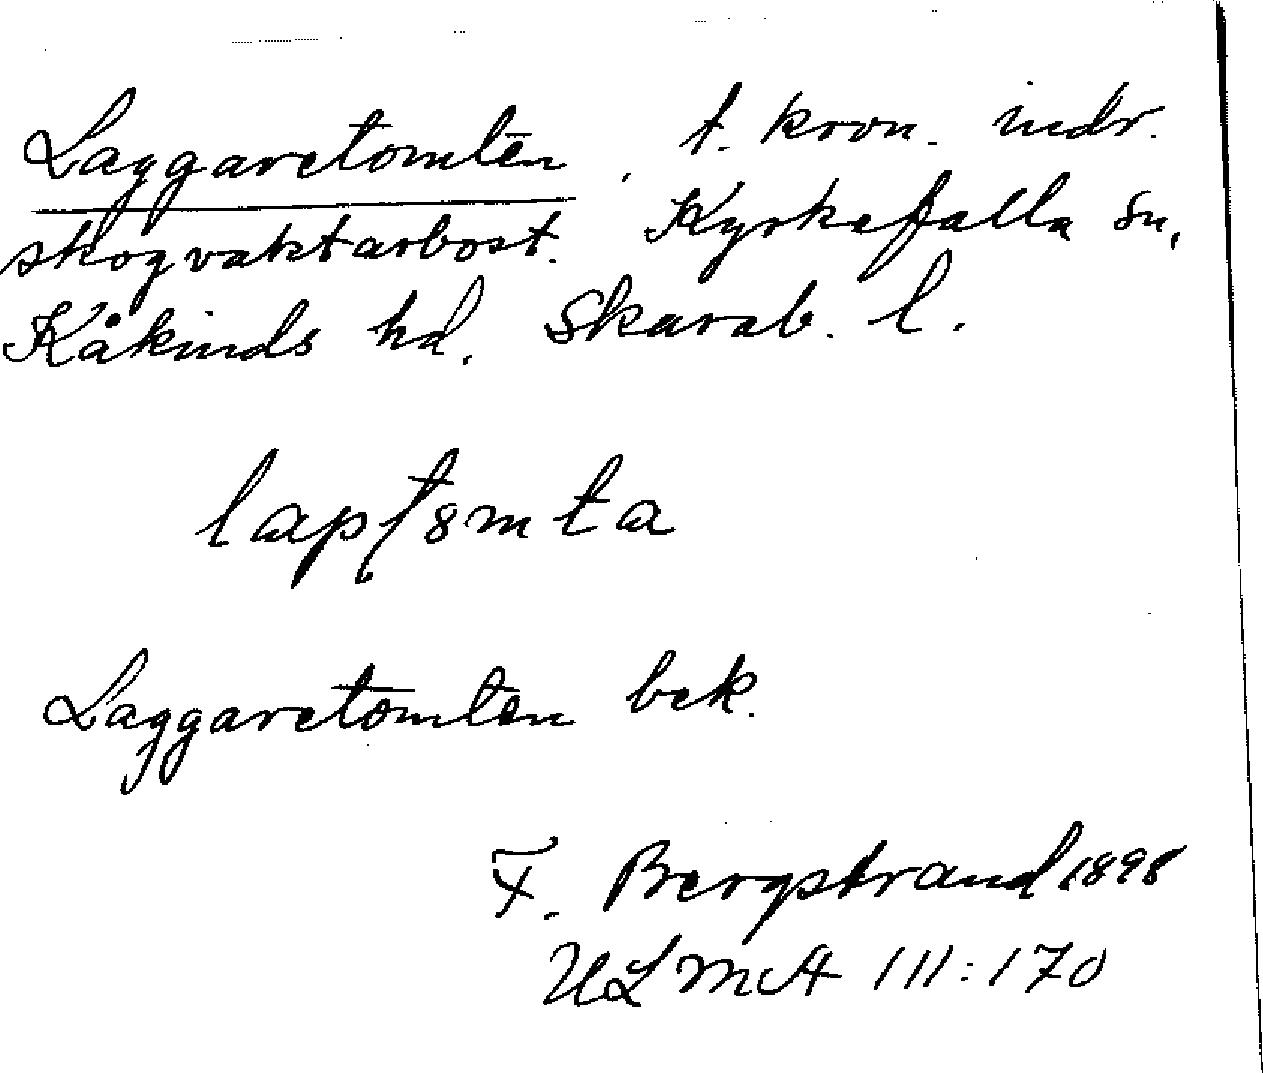 Laggaretomten, t. kron. indr.
skogvaktarbost. Kyrkefalla sn,
Kåkinds hd. Skarab. l.
Laggaretomten bek.
F. Bergstrand 1898
ULMA 111:170